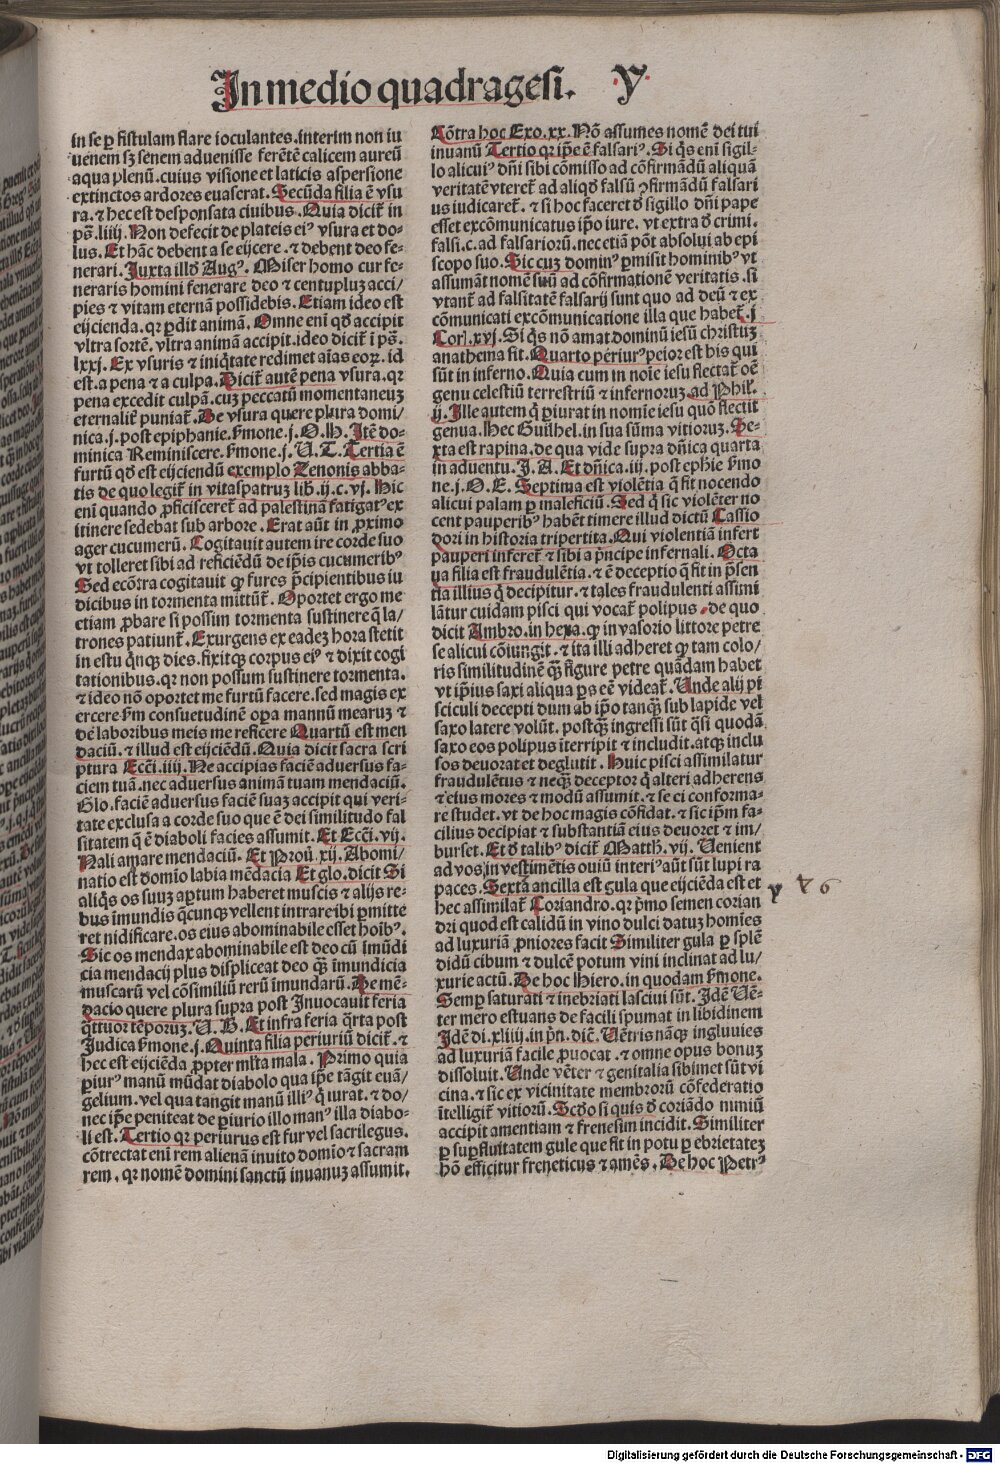 In medio quadragesi. Y
in se ꝑ fistulam flare ioculantes.interim non iu
uenem sꝫ senem aduenisse ferētē calicem aureū
aqua plenū.cuius visione et laticis aspersione
extinctos ardores euaserat.Secūda filia ē vsu
ra.⁊ hec est desponsata ciuibus.Quia dicit̄ in
ps̄.liiij.Non defecit de plateis ei⁹ vsura et do-
lus.Et hāc debent a se eijcere.⁊ debent deo fe-
nerari.Juxta illd̓ Aug⁹.Miser homo cur fe-
neraris homini fenerare deo ⁊ centupluꝫ acci/
pies ⁊ vitam eternā possidebis.Etiam ideo est
eijcienda.qꝛ ꝑdit animā.Omne enī qd̓ accipit
vltra sortē.vltra animā accipit.ideo dicit̄ ī ps̄.
lxxj.Ex vsuris ⁊ iniq̇tate redimet aīas eoꝝ.id
est.a pena ⁊ a culpa.Dicit̄ autē pena vsura.qꝛ
pena excedit culpā.cuꝫ peccatū momentaneuꝫ
eternalit̓ puniat̄.De vsura quere plura domi/
nica.j.post epiphanie.ẜmone.j.O.H.Itē do-
minica Reminiscere.ẜmone.j.U.T.Tertia ē
furtū qd̓ est eijciendū exemplo Zenonis abba-
tis de quo legit̄ in vitaspatruꝫ lib̓.ij.c.vj.Hic
enī quando ꝓficisceret̄ ad palestinā fatigat⁹ ex
itinere sedebat sub arbore.Erat aūt in ꝓximo
ager cucumerū.Cogitauit autem ire corde suo
vt tolleret sibi ad reficiēdū de ip̄is cucumerib⁹
Sed ecōtra cogitauit ꝙ fures p̄cipientibus iu
dicibus in tormenta mittūt̄.Oportet ergo me
etiam ꝓbare si possim tormenta sustinere q̄ la/
trones patiunt̄.Exurgens ex eadeꝫ hora stetit
in estu q̇nqꝫ dies.fixitqꝫ corpus ei⁹ ⁊ dixit cogi
tationibus.qꝛ non possum sustinere tormenta.
⁊ ideo nō oportet me furtū facere.sed magis ex
ercere ẜm consuetudinē oꝑa mannū mearuꝫ ⁊
dē laboribus meis me reficere Quartū est men
daciū.⁊ illud est eijciēdū.Quia dicit sacra scri
ptura Ecc̄i.iiij.Ne accipias faciē aduersus fa-
ciem tuā.nec aduersus animā tuam mendaciū.
Glo.faciē aduersus faciē suaꝫ accipit qui veri-
tate exclusa a corde suo que ē dei similitudo fal
sitatem q̄ ē diaboli facies assumit.Et Ecc̄i.vij.
Noli amare mendaciū.Et Prou̓.xij.Abomi/
natio est domīo labia mēdacia Et glo.dicit Si
aliq̇s os suuꝫ aꝑtum haberet muscis ⁊ alijs re-
bus īmundis q̇cunqꝫ vellent intrare ibi ꝑmitte
ret nidificare.os eius abominabile esset hoīb⁹.
Sic os mendax abominabile est deo cū īmūdi
cia mendacij plus displiceat deo qꝫ̄ īmundicia
muscarū vel cōsimiliū rerū īmundarū.De mē-
dacio quere plura supra post Inuocauit feria
q̄ttuor tēporuꝫ.U.B.Et infra feria q̄rta post
Judica ẜmone.j.Quinta filia periuriū dicit̄.⁊
hec est eijciēda ꝓpter ml̓ta mala.Primo quia
ꝑiur⁹ manū mūdat diabolo qua ip̄e tāgit euā/
gelium.vel qua tangit manū illi⁹ q̇ iurat.⁊ do/
nec ip̄e peniteat de ꝑiurio illo man⁹ illa diabo-
li est.Tertio qꝛ periurus est fur vel sacrilegus.
cōtrectat enī rem alienā inuito domīo ⁊ sacram
rem.qꝛ nomē domini sanctū inuanuꝫ assumit.
Cōtra hoc Exo.xx.Nō assumes nomē dei tui
inuanū Tertio qꝛ ip̄e ē falsari⁹.Si q̇s enī sigil-
lo alicui⁹ dn̄i sibi cōmisso ad cōfirmādū aliquā
veritatē vteret̄ ad aliqd̓ falsū ꝯfirmādū falsari
us iudicaret̄.⁊ si hoc faceret d̓ sigillo dn̄i pape
esset excōmunicatus ip̄o iure.vt extra d̓ crimi.
falsi.c.ad falsariorū.nec etiā pōt absolui ab epi
scopo suo.Sic cuꝫ domin⁹ ꝑmisit hominib⁹ vt
assumāt nomē suū ad cōfirmationē veritatis.si
vtant̄ ad falsitatē falsarij sunt quo ad deū ⁊ ex
cōmunicati excōmunicatione illa que habet̄.j
Corī.xvj.Si q̇s nō amat dominū iesū christuꝫ
anathema sit.Quarto periur⁹ peior est his qui
sūt in inferno.Quia cum in noīe iesu flectat̄ oē
genu celestiū terrestriū ⁊ infernoruꝫ.ad Phil̓.
ij.Ille autem q̇ ꝑiurat in nomīe iesu quō flectit
genua.Hec Guilhel.in sua sūma vitioruꝫ.Se-
xta est rapina.de qua vide supra dn̄ica quarta
in aduentu.J.A.Et dn̄ica.iij.post eph̓ie ẜmo
ne.j.O.E.Septima est violētia q̄ fit nocendo
alicui palam ꝑ maleficiū.Sed q̇ sic violēter no
cent pauperib⁹ habēt timere illud dictū Cassio
dori in historia tripertita.Qui violentiā infert
pauperi inferet̄ ⁊ sibi a p̄ncipe infernali.Octa
ua filia est fraudulētia.⁊ ē deceptio q̄ fit in p̄sen
tia illius q̇ decipitur.⁊ tales fraudulenti assimi
lātur cuidam pisci qui vocat̄ polipus.de quo
dicit Ambro.in hexa.ꝙ in vasorio littore petre
se alicui cōiungit.⁊ ita illi adheret ꝙ tam colo/
ris similitudinē qꝫ̄ figure petre quādam habet
vt ip̄ius saxi aliqua ꝑs eē videat̄.Unde alij pi
sciculi decepti dum ab ip̄o tanqꝫ̄ sub lapide vel
saxo latere volūt.postqꝫ̄ ingressi sūt q̄si quodā
saxo eos polipus īterripit ⁊ includit.atqꝫ inclu
sos deuorat et deglutit.Huic pisci assimilatur
fraudulētus ⁊ neqꝫ̄ deceptor q̇ alteri adherens
⁊ eius mores ⁊ modū assumit.⁊ se ei conforma-
re studet.vt de hoc magis cōfidat.⁊ sic ip̄m fa-
cilius decipiat ⁊ substantiā eius deuoret ⁊ im/
burset.Et d̓ talib⁹ dicit̄ Matth̓.vij.Uenient
ad vos in vestimētis ouiū interi⁹ aūt sūt lupi ra
paces.Sexta ancilla est gula que eijciēda est et
hec assimilat̄ Coriandro.qꝛ p̄mo semen corian
dri quod est calidū in vino dulci datuꝫ homīes
ad luxuriā ꝓniores facit Similiter gula ꝑ splē
didū cibum ⁊ dulcē potum vini inclinat ad lu/
xurie actū.De hoc Hiero.in quodam ẜmone.
Semꝑ saturati ⁊ inebriati lasciui sūt.Idē Uē-
ter mero estuans de facili spumat in libidinem
Idē di.xliiij.in pn̄.dic̄.Uētris nāqꝫ ingluuies
ad luxuriā facile ꝓuocat.⁊ omne opus bonuꝫ
dissoluit.Unde vēter ⁊ genitalia sibimet sūt vi
cina.⁊ sic ex vicinitate membrorū cōfederatio
ītelligit̄ vitiorū.Scd̓o si quis d̓ coriādo nimiū
accipit amentiam ⁊ frenesim incidit.Similiter
ꝑ suꝑfluitatem gule que fit in potu ꝑ ebrietateꝫ
hō efficitur freneticus ⁊ amēs.De hoc Petr⁹
Y
Digitalisierung gefördert durch die Deutsche Forschungsgemeinschaft - DFG